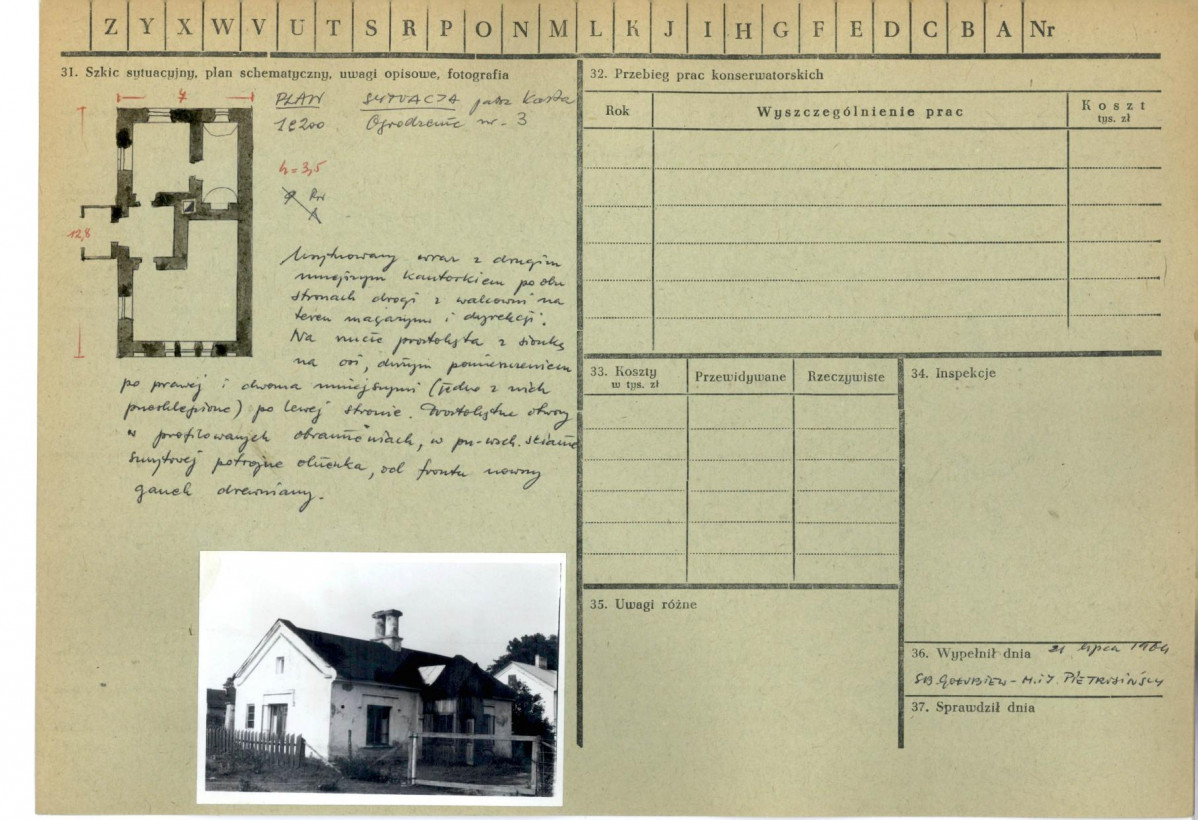 Z Y X W V U T S R P O N M L K J I H G F E D C B A Nr
31. Szkic sytuacyjny, plan schematyczny, uwagi opisowe, fotografia
7
PLAN
1:200
SYTUACJA patrz Karta
Ogrodzenie nr. 3
h = 3,5
12,8
Usytuowany wraz z drugim
mniejszym kantorkiem po obu
stronach drogi z walcowni na
teren magazynu i dyrekcji.
Na rzucie prostokąta z sionką
na osi, dużym pomieszczeniem
po prawej i dwoma mniejszymi (jedno z nich
przesklepione) po lewej stronie. Prostokątne otwory
w profilowanych obramieniach, w pn-wsch. ścianie
szczytowej potrójne okienka, od frontu nowszy
ganek drewniany.
32. Przebieg prac konserwatorskich
Rok
Wyszczególnienie prac
Koszt
tys. zł
33. Koszty
w tys. zł
Przewidywane
Rzeczywiste
34. Inspekcje
35. Uwagi różne
36. Wypełnił dnia 21 lipca 1964
M. i J. PIETRUSIŃSCY
37. Sprawdził dnia